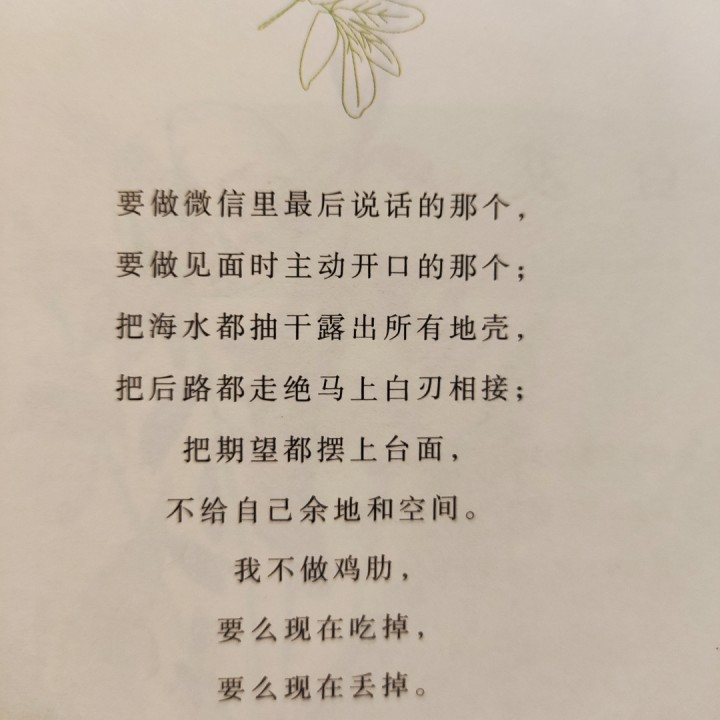 要做微信里最后说话的那个，
要做见面时主动开口的那个；
把海水都抽干露出所有地壳，
把后路都走绝马上白刃相接；
把期望都摆上台面，
不给自己余地和空间。
我不做鸡肋，
要么现在吃掉，
要么现在丢掉。